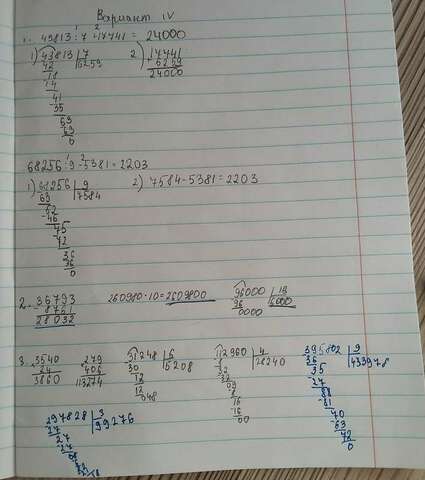 Вариант IV
1. 43813 : 7 + 17741 = 24000
1) 43813 | 7 2) 17741
42 | 6259 6259
18 24000
14
41
35
63
63
0
68256 : 9 - 5381 = 2203
1) 68256 | 9 2) 7584 - 5381 = 2203
63 | 7584
52
45
75
72
36
36
0
2. 36793 260980 · 10 = 2609800 96000 | 16
8761 96 | 6000
28032 0000
3. 3540 279 31248 | 6 112960 | 4 395802 | 9
24 406 30 | 5208 8 | 28240 36 | 433978
3860 113274 12 32 35
12 32 27
048 09 88
8 81
16 70
16 63
00 72
0
297828 | 3
27 | 99276
27
27
08